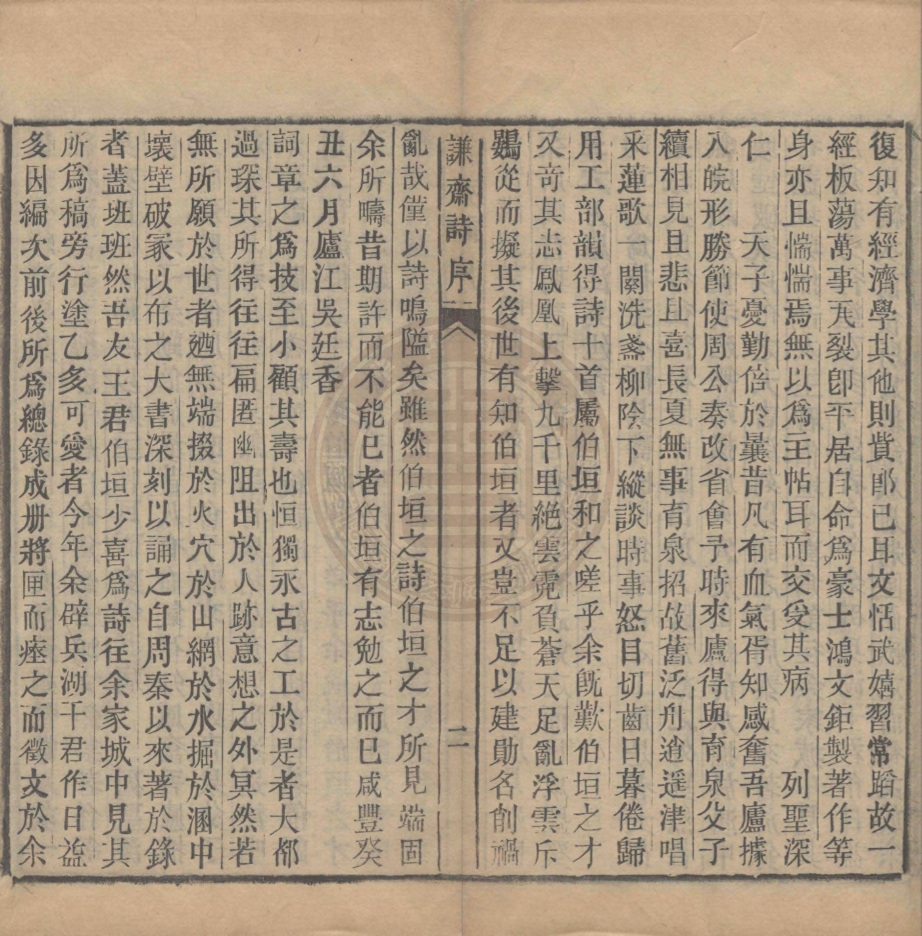 復知有經濟學其他則貲郎已耳文恬武嬉習常蹈故一
經板蕩萬事瓦裂卽平居自命爲豪士鴻文鉅製著作等
身亦且惴惴焉無以爲主帖耳而交受其病 列聖深
仁 天子憂勤倍於曩昔凡有血氣胥知感奮吾廬據
八皖形勝節使周公奏改省會予時來廬得與育泉父子
續相見且悲且喜長夏無事育泉招故舊泛舟逍遙津唱
采蓮歌一闋洗盞柳陰下縱談時事怒目切齒日暮倦歸
用工部韻得詩十首屬伯垣和之嗟乎余旣歎伯垣之才
又奇其志鳳凰上擊九千里絶雲霓負蒼天足亂浮雲斥
鷃從而擬其後世有知伯垣者又豈不足以建勛名創禍
謙齋詩序 二
亂哉僅以詩鳴隘矣雖然伯垣之詩伯垣之才所見端固
余所疇昔期許而不能已者伯垣有志勉之而已咸豐癸
丑六月廬江吳廷香
詞章之爲技至小顧其壽也恒獨永古之工於是者大都
過琛其所得往往扃匿幽阻出於人跡意想之外冥然若
無所願於世者廼無端掇於火穴於山網於水掘於溷中
壞壁破冢以布之大書深刻以誦之自周秦以來著於錄
者蓋班班然吾友王君伯垣少喜爲詩往余家城中見其
所爲稿旁行塗乙多可愛者今年余辟兵湖干君作日益
多因編次前後所爲總錄成册將匣而瘞之而徵文於余